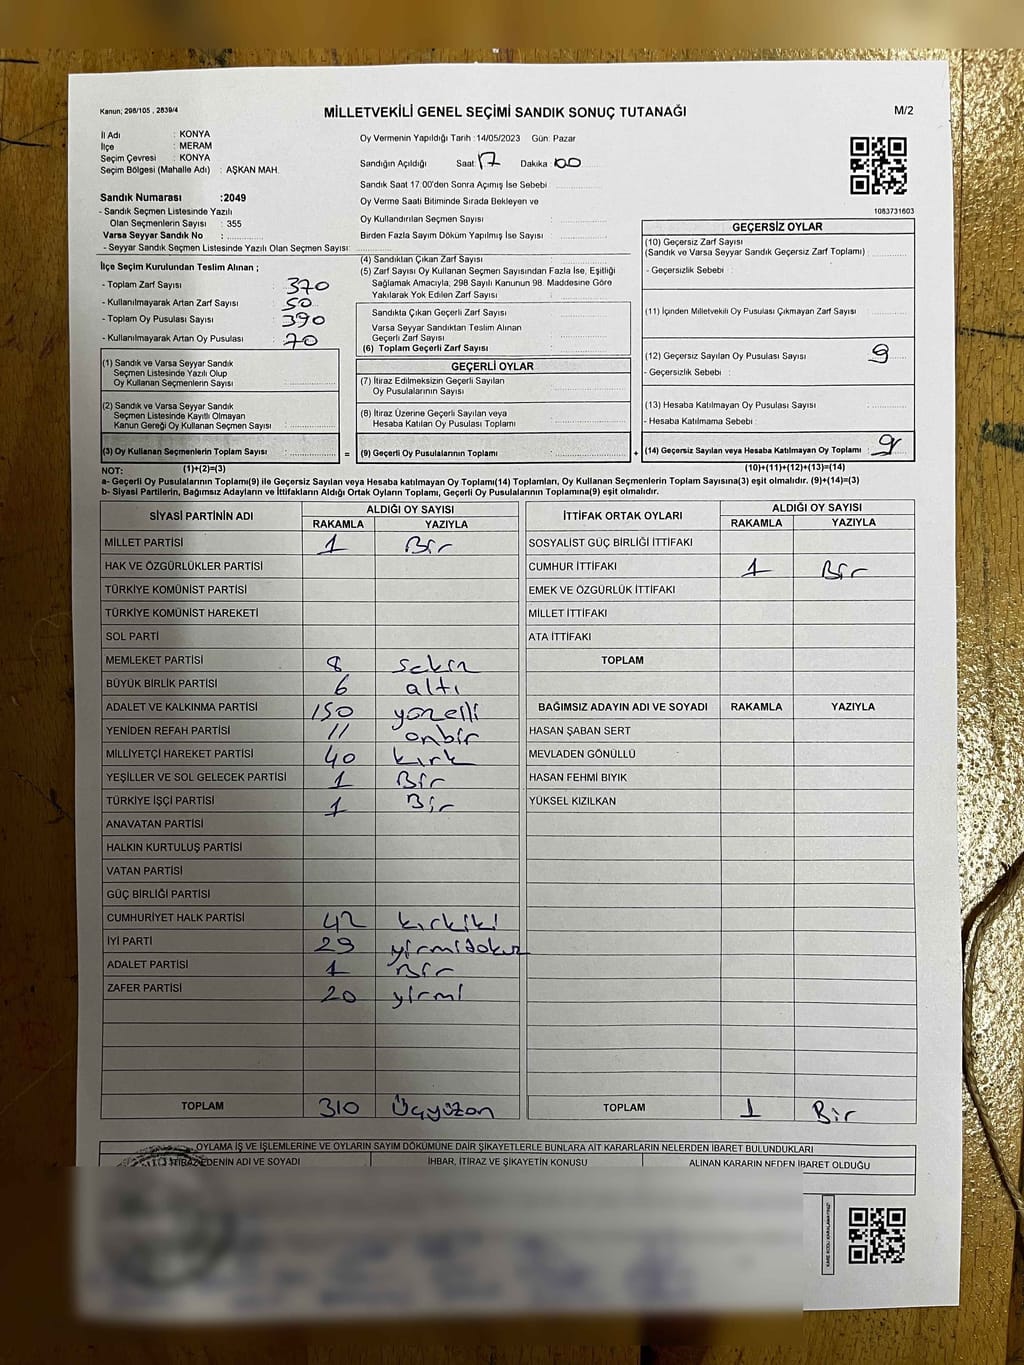 Kanun; 298/105 , 2839/4
MİLLETVEKİLİ GENEL SEÇİMİ SANDIK SONUÇ TUTANAĞI
M/2
İl Adı : KONYA
İlçe : MERAM
Seçim Çevresi : KONYA
Seçim Bölgesi (Mahalle Adı) : AŞKAN MAH.
Sandık Numarası :2049
- Sandık Seçmen Listesinde Yazılı
Olan Seçmenlerin Sayısı : 355
Varsa Seyyar Sandık No :
- Seyyar Sandık Seçmen Listesinde Yazılı Olan Seçmen Sayısı:
Oy Vermenin Yapıldığı Tarih :14/05/2023 Gün: Pazar
Sandığın Açıldığı Saat: 17 Dakika 00
Sandık Saat 17:00'den Sonra Açımış İse Sebebi :
Oy Verme Saati Bitiminde Sırada Bekleyen ve
Oy Kullandırılan Seçmen Sayısı :
Birden Fazla Sayım Döküm Yapılmış İse Sayısı :
1083731603
İlçe Seçim Kurulundan Teslim Alınan ;
- Toplam Zarf Sayısı : 370
- Kullanılmayarak Artan Zarf Sayısı : 50
- Toplam Oy Pusulası Sayısı : 390
- Kullanılmayarak Artan Oy Pusulası : 70
(1) Sandık ve Varsa Seyyar Sandık
Seçmen Listesinde Yazılı Olup
Oy Kullanan Seçmenlerin Sayısı :
(2) Sandık ve Varsa Seyyar Sandık
Seçmen Listesinde Kayıtlı Olmayan
Kanun Gereği Oy Kullanan Seçmen Sayısı :
(3) Oy Kullanan Seçmenlerin Toplam Sayısı :
(4) Sandıktan Çıkan Zarf Sayısı :
(5) Zarf Sayısı Oy Kullanan Seçmen Sayısından Fazla İse, Eşitliği
Sağlamak Amacıyla, 298 Sayılı Kanunun 98. Maddesine Göre
Yakılarak Yok Edilen Zarf Sayısı :
Sandıkta Çıkan Geçerli Zarf Sayısı :
Varsa Seyyar Sandıktan Teslim Alınan
Geçerli Zarf Sayısı :
(6) Toplam Geçerli Zarf Sayısı :
GEÇERLİ OYLAR
(7) İtiraz Edilmeksizin Geçerli Sayılan
Oy Pusulalarının Sayısı :
(8) İtiraz Üzerine Geçerli Sayılan veya
Hesaba Katılan Oy Pusulası Toplamı :
= (9) Geçerli Oy Pusulalarının Toplamı :
GEÇERSİZ OYLAR
(10) Geçersiz Zarf Sayısı
(Sandık ve Varsa Seyyar Sandık Geçersiz Zarf Toplamı) :
- Geçersizlik Sebebi :
(11) İçinden Milletvekili Oy Pusulası Çıkmayan Zarf Sayısı :
(12) Geçersiz Sayılan Oy Pusulası Sayısı : 9
- Geçersizlik Sebebi :
(13) Hesaba Katılmayan Oy Pusulası Sayısı :
- Hesaba Katılmama Sebebi :
+ (14) Geçersiz Sayılan veya Hesaba Katılmayan Oy Toplamı : 9
NOT: (1)+(2)=(3) (10)+(11)+(12)+(13)=(14)
a- Geçerli Oy Pusulalarının Toplamı(9) ile Geçersiz Sayılan veya Hesaba katılmayan Oy Toplamı(14) Toplamları, Oy Kullanan Seçmenlerin Toplam Sayısına(3) eşit olmalıdır. (9)+(14)=(3)
b- Siyasi Partilerin, Bağımsız Adayların ve İttifakların Aldığı Ortak Oyların Toplamı, Geçerli Oy Pusulalarının Toplamına(9) eşit olmalıdır.
SİYASİ PARTİNİN ADI ALDIĞI OY SAYISI
RAKAMLA YAZIYLA
MİLLET PARTİSİ 1 Bir
HAK VE ÖZGÜRLÜKLER PARTİSİ
TÜRKİYE KOMÜNİST PARTİSİ
TÜRKİYE KOMÜNİST HAREKETİ
SOL PARTİ
MEMLEKET PARTİSİ 8 sekiz
BÜYÜK BİRLİK PARTİSİ 6 altı
ADALET VE KALKINMA PARTİSİ 150 yüzelli
YENİDEN REFAH PARTİSİ 11 onbir
MİLLİYETÇİ HAREKET PARTİSİ 40 kırk
YEŞİLLER VE SOL GELECEK PARTİSİ 1 Bir
TÜRKİYE İŞÇİ PARTİSİ 1 Bir
ANAVATAN PARTİSİ
HALKIN KURTULUŞ PARTİSİ
VATAN PARTİSİ
GÜÇ BİRLİĞİ PARTİSİ
CUMHURİYET HALK PARTİSİ 42 kırkiki
İYİ PARTİ 29 yirmidokuz
ADALET PARTİSİ 1 Bir
ZAFER PARTİSİ 20 yirmi
TOPLAM 310 Üçyüzon
İTTİFAK ORTAK OYLARI ALDIĞI OY SAYISI
RAKAMLA YAZIYLA
SOSYALİST GÜÇ BİRLİĞİ İTTİFAKI
CUMHUR İTTİFAKI 1 Bir
EMEK VE ÖZGÜRLÜK İTTİFAKI
MİLLET İTTİFAKI
ATA İTTİFAKI
TOPLAM
BAĞIMSIZ ADAYIN ADI VE SOYADI RAKAMLA YAZIYLA
HASAN ŞABAN SERT
MEVLADEN GÖNÜLLÜ
HASAN FEHMİ BIYIK
YÜKSEL KIZILKAN
TOPLAM 1 Bir
OYLAMA İŞ VE İŞLEMLERİNE VE OYLARIN SAYIM DÖKÜMÜNE DAİR ŞİKAYETLERLE BUNLARA AİT KARARLARIN NELERDEN İBARET BULUNDUKLARI
İTİRAZ EDENİN ADI VE SOYADI İHBAR, İTİRAZ VE ŞİKAYETİN KONUSU ALINAN KARARIN NEDEN İBARET OLDUĞU